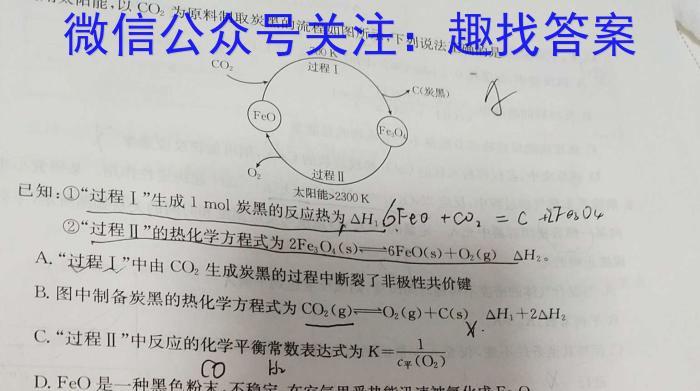 用太阳能,以 CO₂ 为原料制取炭黑的流程如图所示,下列说法正确的是
微信公众号关注:趣找答案
700 K
过程Ⅰ
CO₂
C(炭黑)
A
FeO
Fe₃O₄
O₂
过程Ⅱ
太阳能>2300 K
已知:①“过程Ⅰ”生成 1 mol 炭黑的反应热为 ΔH₁ 6FeO + CO₂ = C + 2Fe₃O₄
②“过程Ⅱ”的热化学方程式为 2Fe₃O₄(s)⇌6FeO(s)+O₂(g) ΔH₂。
A. “过程Ⅰ”中由 CO₂ 生成炭黑的过程中断裂了非极性共价键
B. 图中制备炭黑的热化学方程式为 CO₂(g)⇌O₂(g)+C(s) ΔH₁+2ΔH₂
X.
C. “过程Ⅱ”中反应的化学平衡常数表达式为 K=1/c平(O₂)
CO H₂
D. FeO 是一种黑色粉末,不稳定,在空气里受热能迅速被氧化成 Fe₃O₄